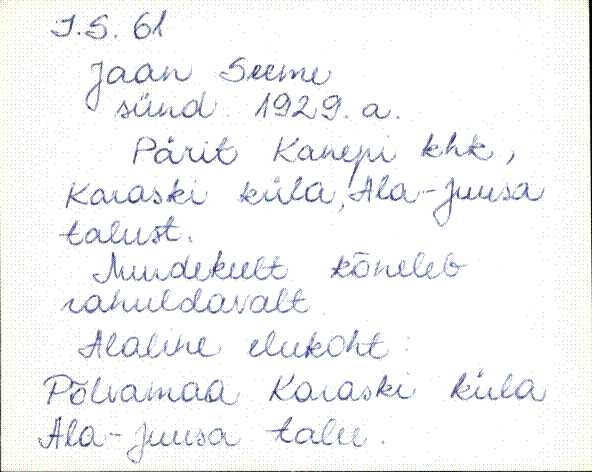 J.S. 61
Jaan Seeme
sünd. 1929. a.
Pärit Kanepi khk,
Karaski küla, Ala-Juusa
talust.
Murdekeelt kõneleb
rahuldavalt
Alaline elukoht:
Põlvamaa Karaski küla
Ala-Juusa talu.